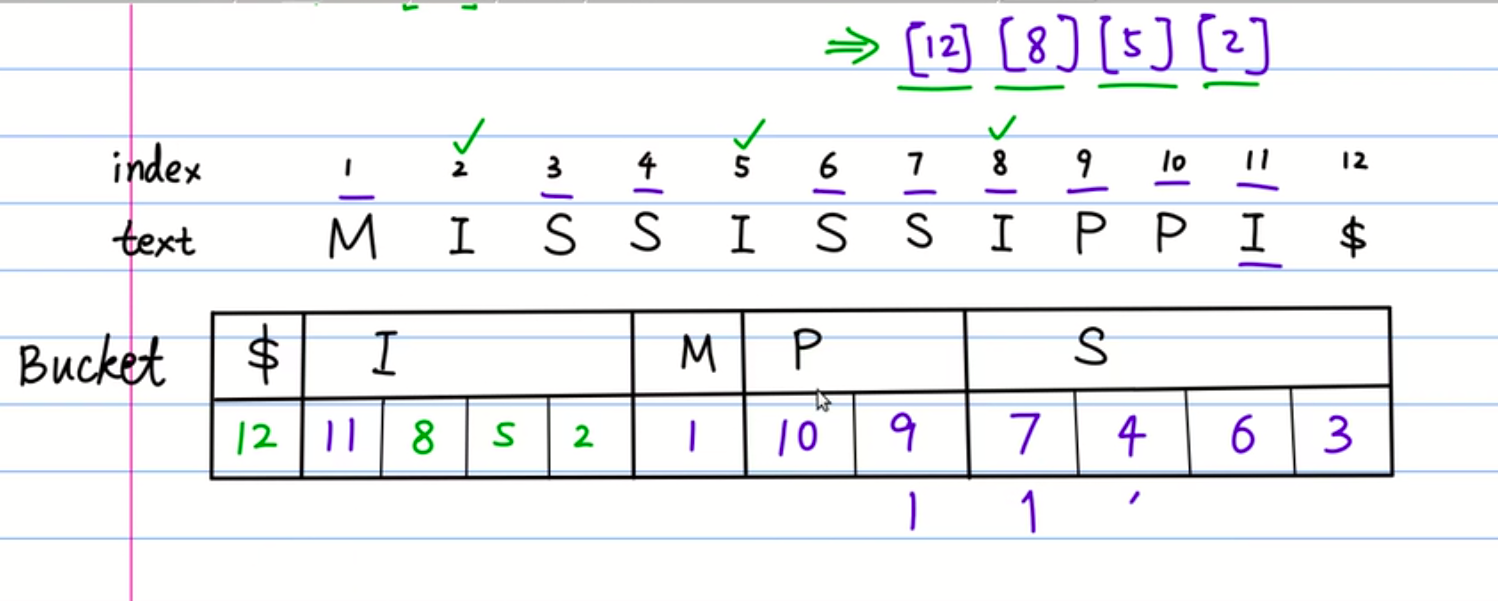 ⇒ [12] [8] [5] [2]
✓ ✓ ✓
index 1 2 3 4 5 6 7 8 9 10 11 12
text M I S S I S S I P P I $
Bucket $ I M P S
12 11 8 5 2 1 10 9 7 4 6 3
1 1